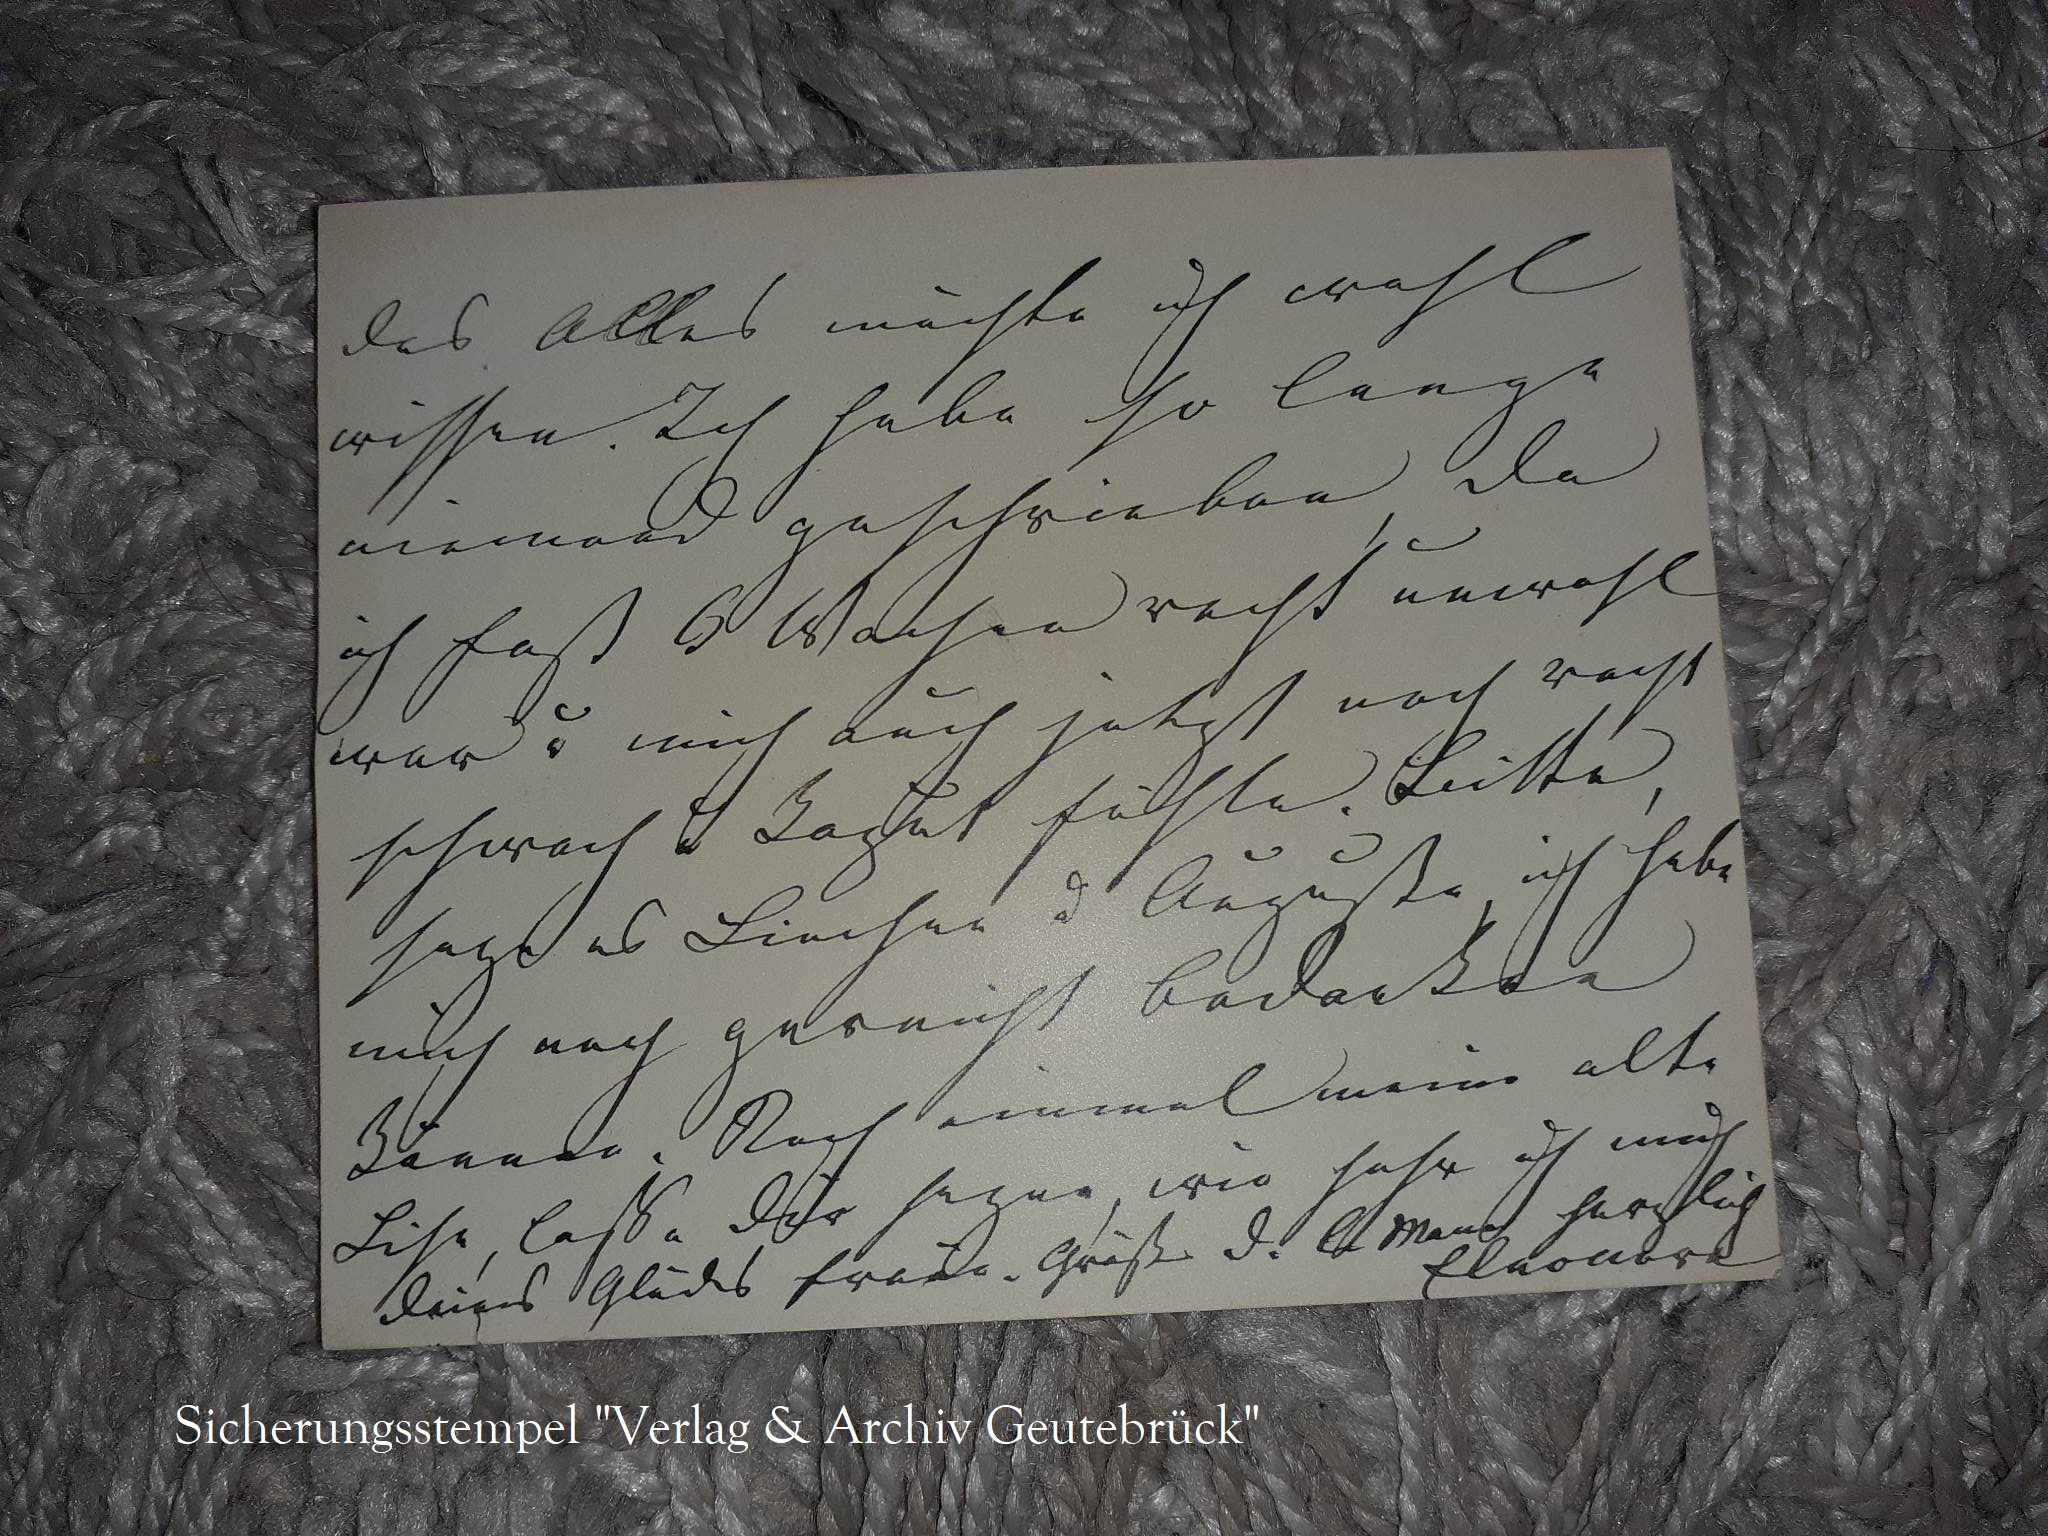 das Alles möchte ich wohl
wissen. Ich habe so lange
niemand geschrieben, da
ich fast 6 Wochen recht unwohl
war u mich auch jetzt noch recht
schwach u kaput fühle. Bitte,
sage es Linchen u Auguste, ich habe
mich noch gar nicht bedanken
können. Noch einmal meine alte
Lise, lasse Dir sagen, wie sehr ich mich
deines Glückes freue. Grüße d. l. Mann herzlich
Eleonore
Sicherungsstempel "Verlag & Archiv Geutebrück"